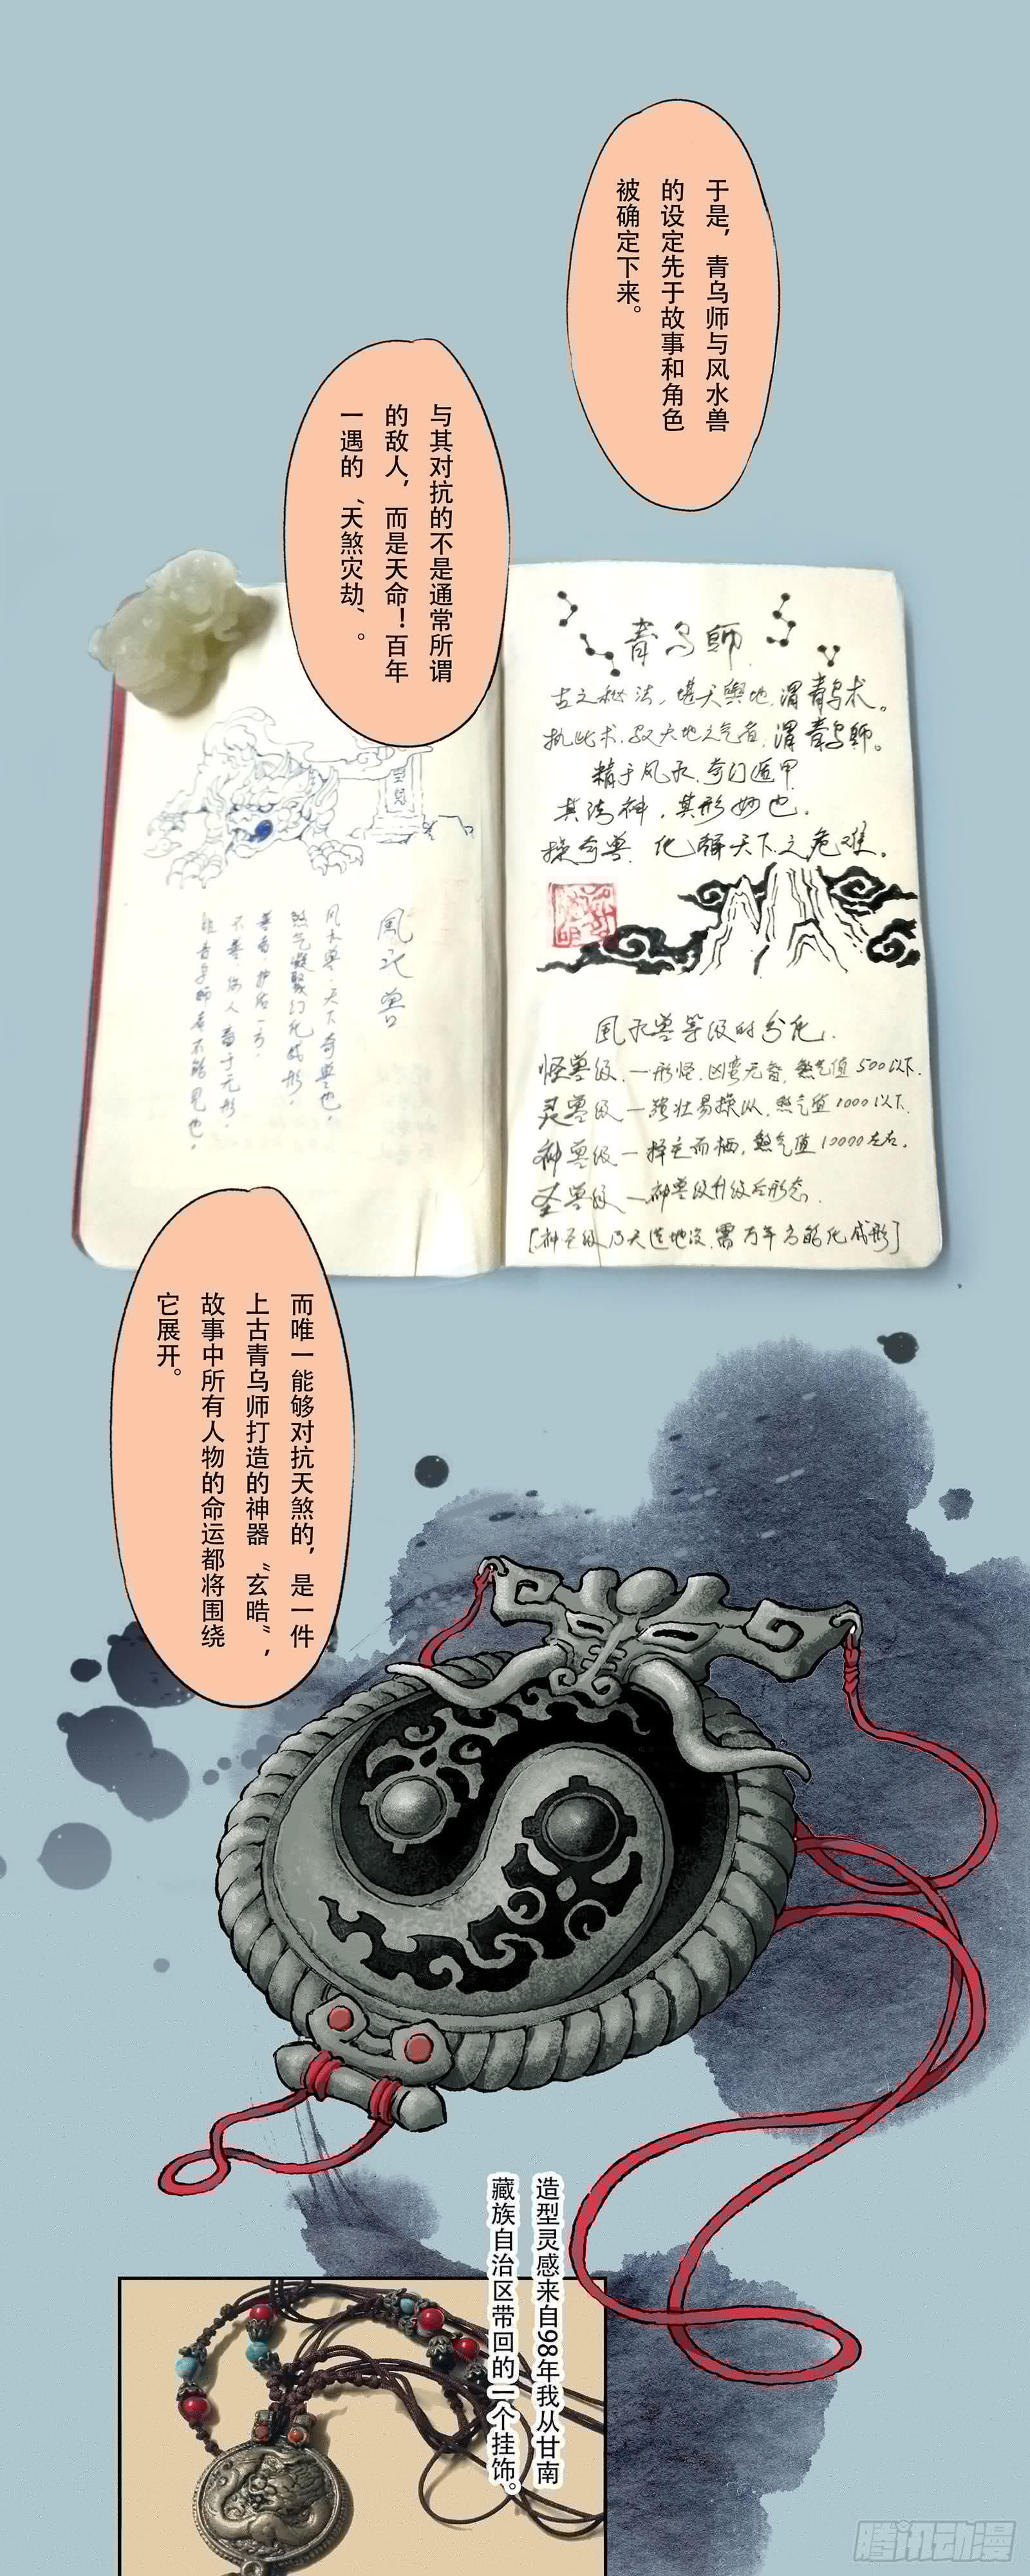 于是，青乌师与风水兽
的设定先于故事和角色
被确定下来。
与其对抗的不是通常所谓
的敌人，而是天命！百年
一遇的“天煞灾劫”。
青乌師
古之秘法，堪天舆地，谓青乌术。
执此术，驭天地之气者，谓青乌師。
精于风水，奇门遁甲
其法神，其形妙也。
操奇兽，化解天下之危难。
風水兽等级的分化
怪兽级—形怪，凶蛮无畜，煞气值500以下.
灵兽级—强壮易操纵，煞气值1000以下.
神兽级—择主而栖，煞气值10000左右.
圣兽级—神兽级升级后形态.
[神圣级乃天造地设，需万年方能化成形]
風水兽
风水兽，天下奇兽也，
煞气凝聚幻化成形。
善者，护佑一方，
不善，伤人畜于无形，
非青乌师者不能见也。
而唯一能够对抗天煞的，是一件
上古青乌师打造的神器“玄晧”，
故事中所有人物的命运都将围绕
它展开。
造型灵感来自98年我从甘南
藏族自治区带回的一个挂饰。
腾讯动漫